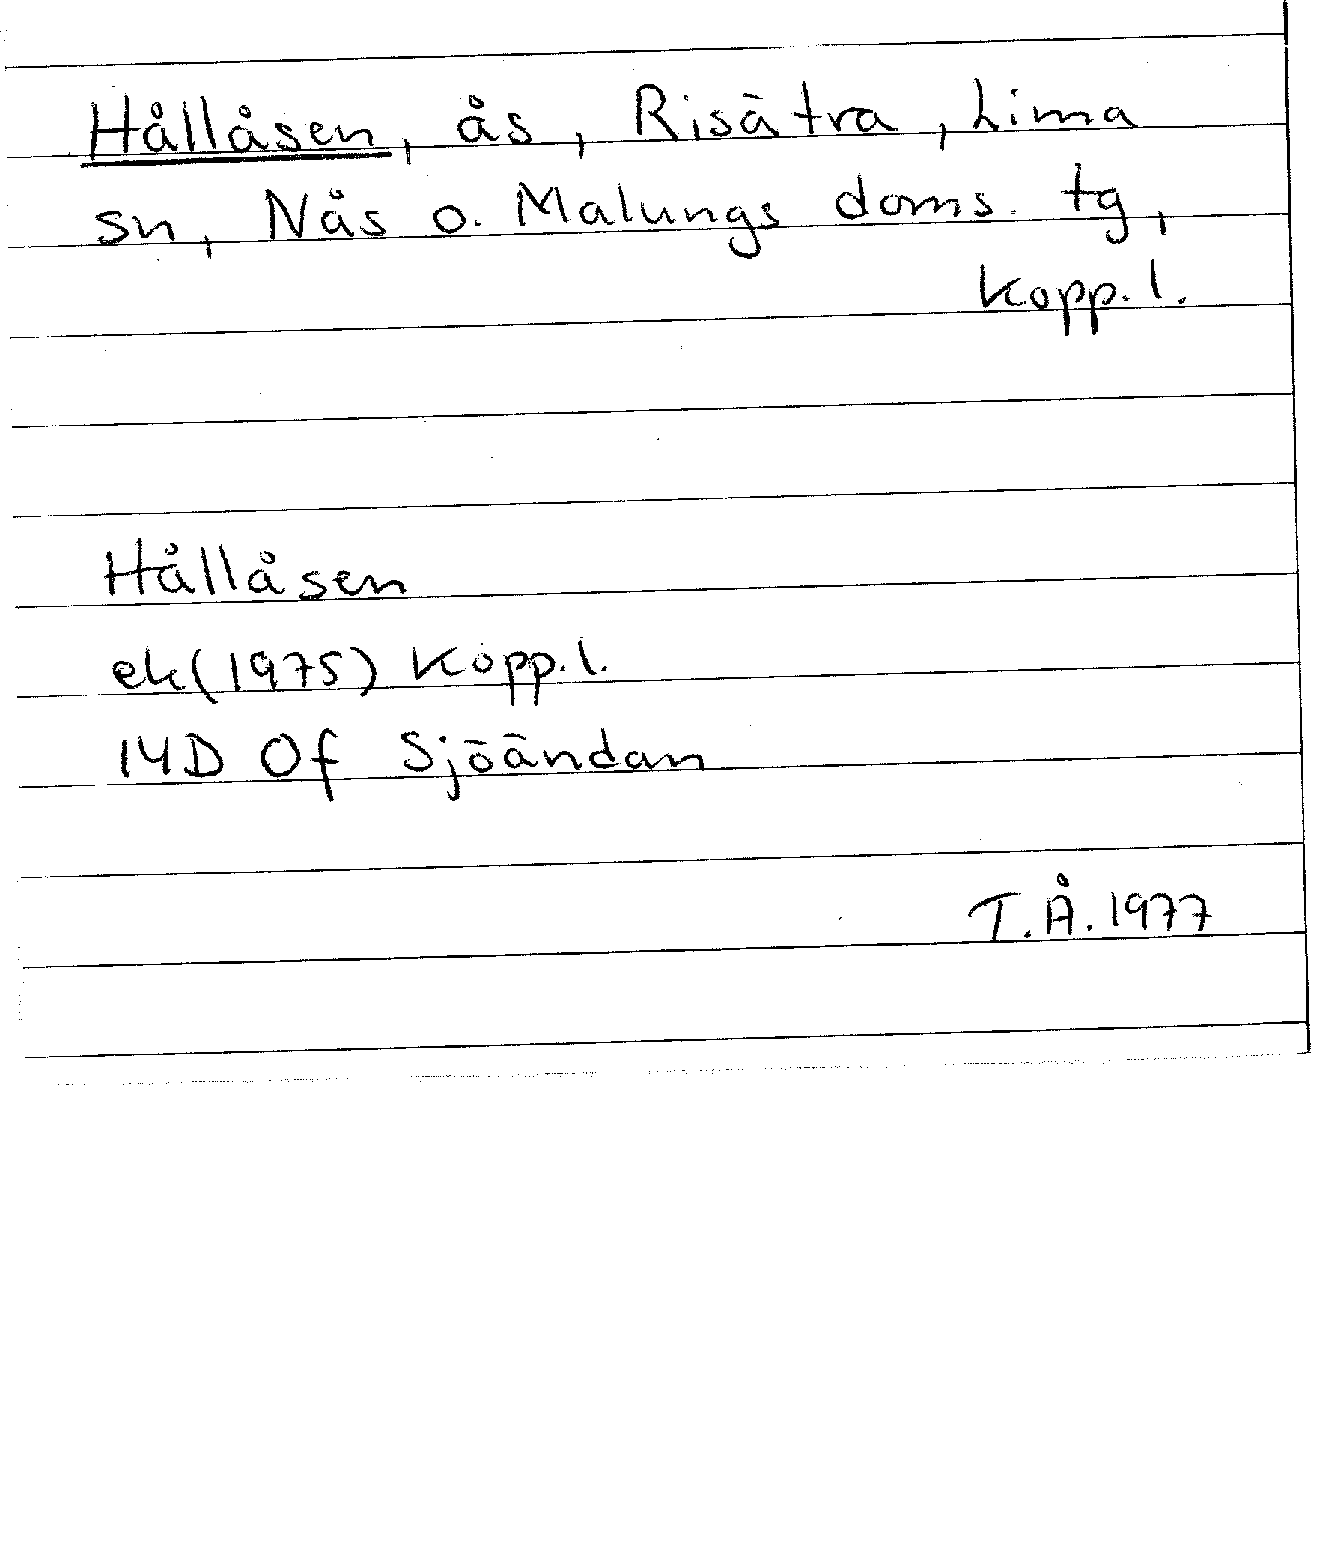 Hållåsen, ås, Risätra, Lima
sn, Nås o. Malungs doms. tg,
Kopp. l.
Hållåsen
ek(1975) Kopp. l.
14D 0f Sjöändan
T.Å. 1977